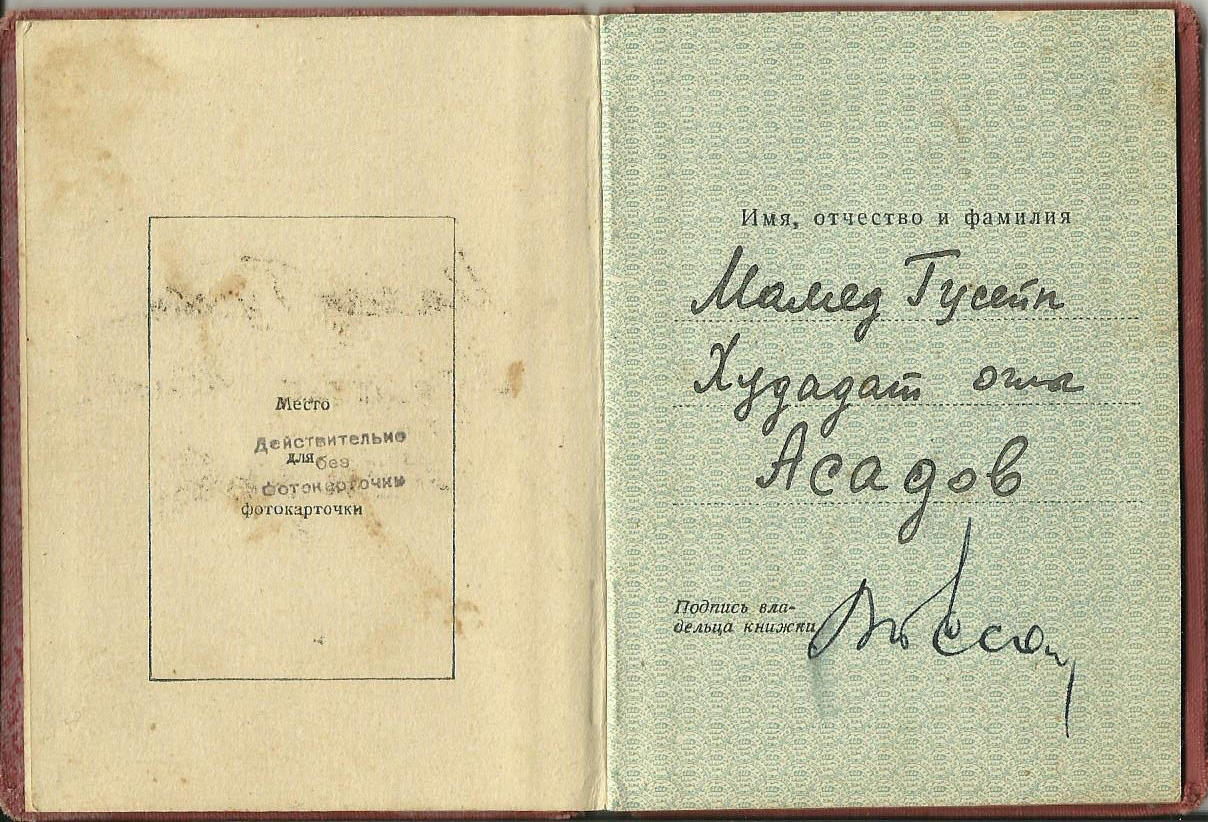 Место
Действительно
для без
фотокарточки
фотокарточки
Имя, отчество и фамилия
Мамед Гусейн
Худадат оглы
Асадов
Подпись вла-
дельца книжки